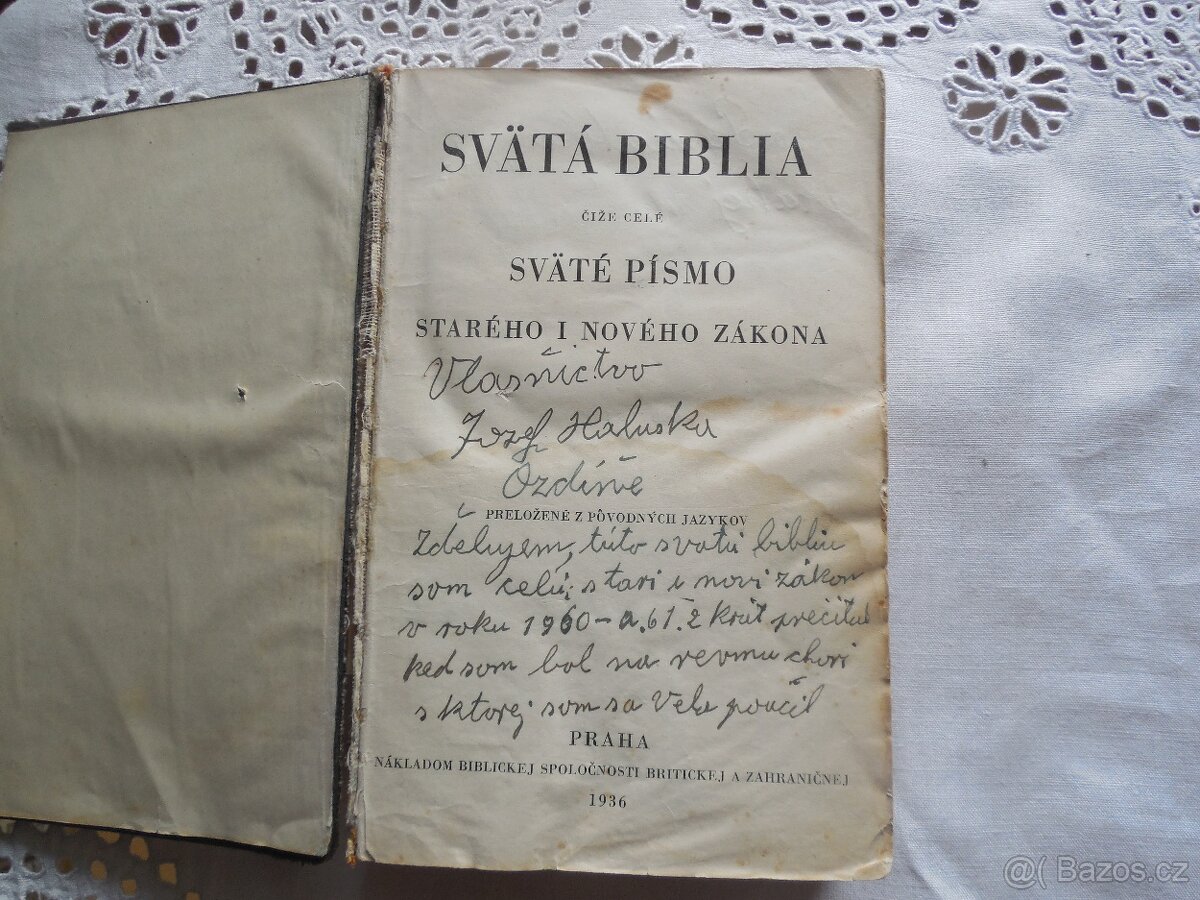 SVÄTÁ BIBLIA
ČIŽE CELÉ
SVÄTÉ PÍSMO
STARÉHO I NOVÉHO ZÁKONA
Vlasňictvo
Jozef Haluska
Ozdíně
PRELOŽENÉ Z PÔVODNÝCH JAZYKOV
Zdělujem, túto svatú bibliu
som celú, stari i novi zákon
v roku 1960-a.61.2 krát prečital
ked som bol na revmu chori
s ktorej som sa Vela poučil
PRAHA
NÁKLADOM BIBLICKEJ SPOLOČNOSTI BRITICKEJ A ZAHRANIČNEJ
1936
@( Bazos.cz